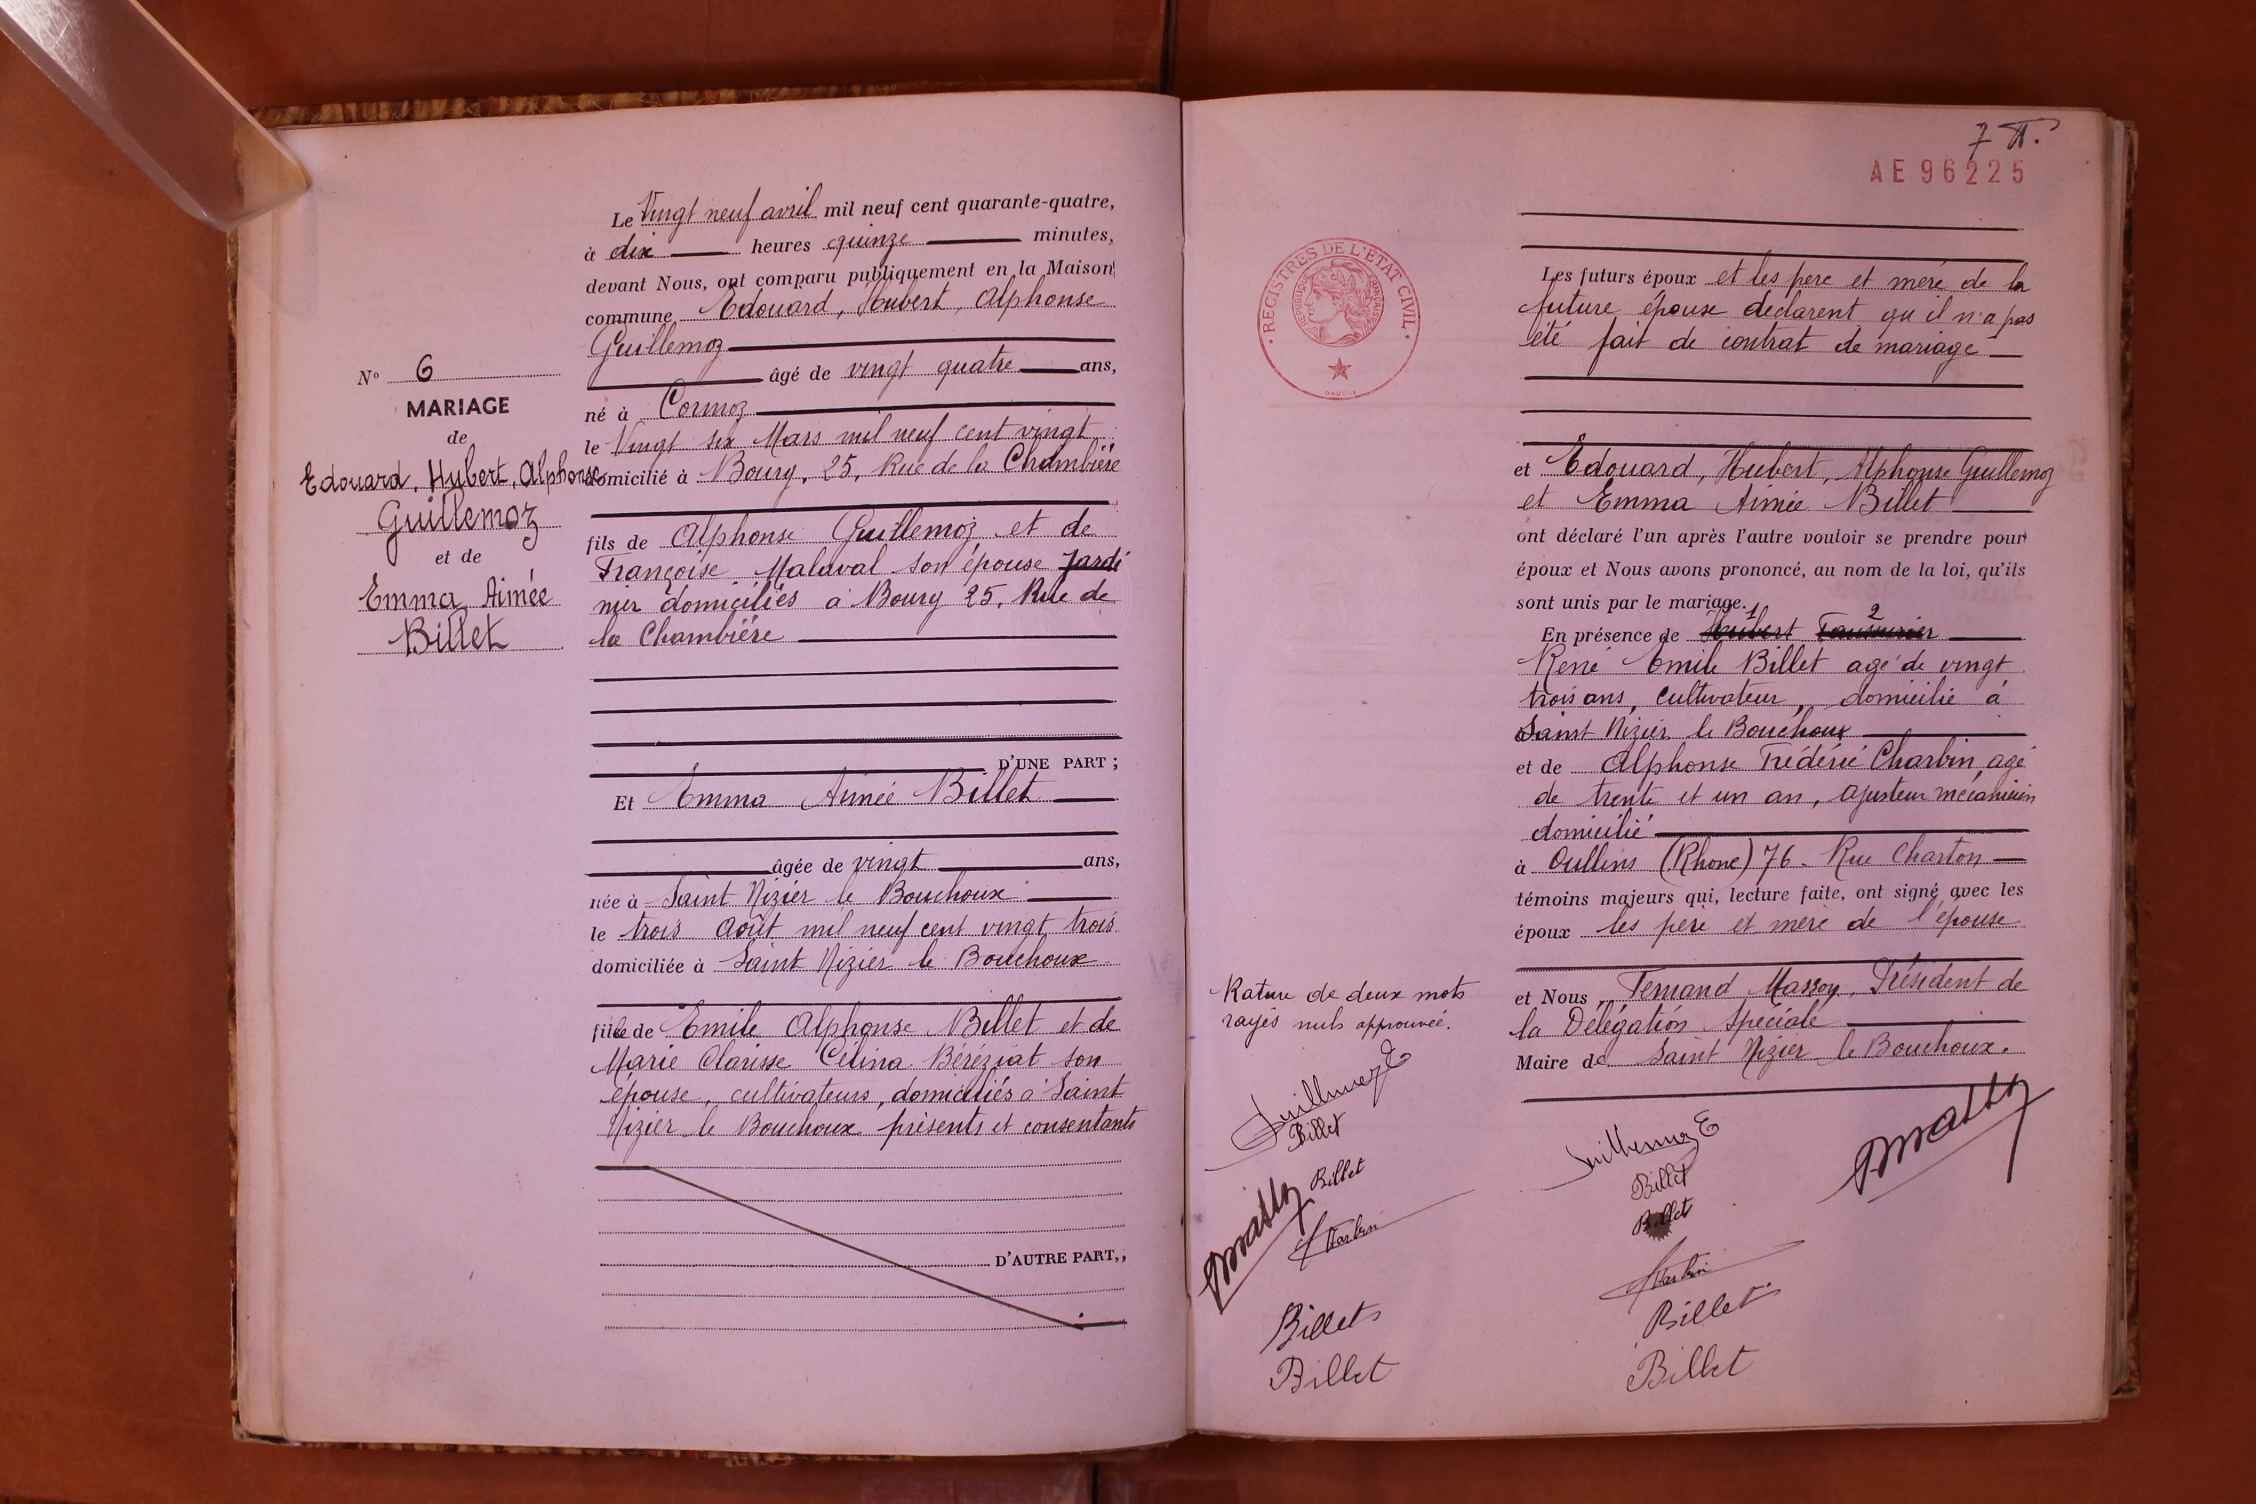 Le Vingt neuf avril mil neuf cent quarante-quatre,
à dix heures quinze minutes,
devant Nous, ont comparu publiquement en la Maison
commune Edouard, Hubert, Alphonse
Guillemoz
âgé de vingt quatre ans,
né à Cormoz
le Vingt six Mars mil neuf cent vingt
domicilié à Bourg, 25, Rue de la Chambière
fils de Alphonse Guillemoz et de
Françoise Malaval son épouse Jardi
nier domiciliés à Bourg 25, Rue de
la Chambière
D'UNE PART ;
Et Emma Aimée Billet
âgée de vingt ans,
née à Saint Nizier le Bouchoux
le trois Août mil neuf cent vingt trois
domiciliée à Saint Nizier le Bouchoux
fille de Emile Alphonse Billet et de
Marie Clarisse Célina Béréziat son
épouse, cultivateurs, domiciliés à Saint
Nizier le Bouchoux présents et consentants
D'AUTRE PART,,
N° 6
MARIAGE
de
Edouard, Hubert, Alphonse
Guillemoz
et de
Emma Aimée
Billet
7
AE 96225
REGISTRES DE L'ETAT CIVIL
Les futurs époux et les pere et mère de la
future épouse déclarent qu'il n'a pas
été fait de contrat de mariage
et Edouard, Hubert, Alphonse Guillemoz
et Emma Aimée Billet
ont déclaré l'un après l'autre vouloir se prendre pour
époux et Nous avons prononcé, au nom de la loi, qu'ils
sont unis par le mariage.
1 2
En présence de Hubert
René Emile Billet agé de vingt
trois ans, cultivateur, domicilié à
Saint Nizier le Bouchoux
et de Alphonse Frédéric Charbin, agé
de trente et un an, ajusteur mécanicien
domicilié
à Oullins (Rhone) 76 - Rue Charton
témoins majeurs qui, lecture faite, ont signé avec les
époux les père et mère de l'épouse
et Nous Fernand Massoy, Président de
la Délégation Spéciale
Maire de Saint Nizier le Bouchoux.
Rature de deux mots
rayés nuls approuvée.
Guillemoz E
Billet
Billet
Massoy
Charbin
Billet
Billet
Guillemoz E
Billet
Billet
Massoy
Charbin
Billet
Billet